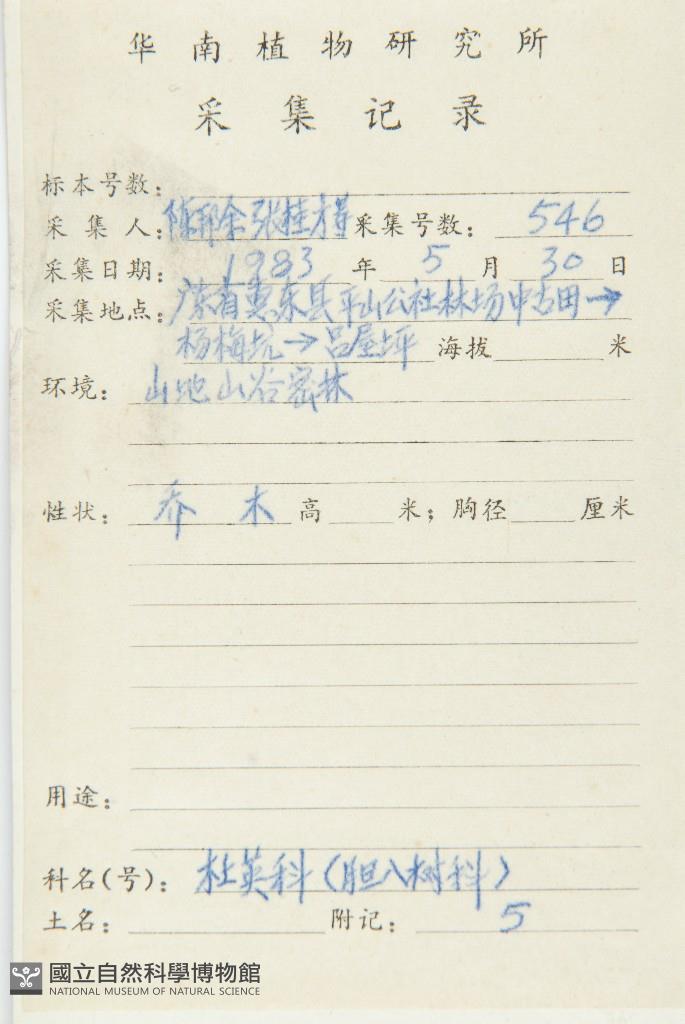 华南植物研究所
采集记录
标本号数：
采集人：陈邦余 张桂才等 采集号数：546
采集日期：1983年5月30日
采集地点：广东省惠东县平山公社林场中古田→
杨梅坑→吕屋坪 海拔 米
环境：山地山谷密林
性状：乔木 高 米；胸径 厘米
用途：
科名(号)：杜英科（胆八树科）
土名： 附记：5
國立自然科學博物館
NATIONAL MUSEUM OF NATURAL SCIENCE